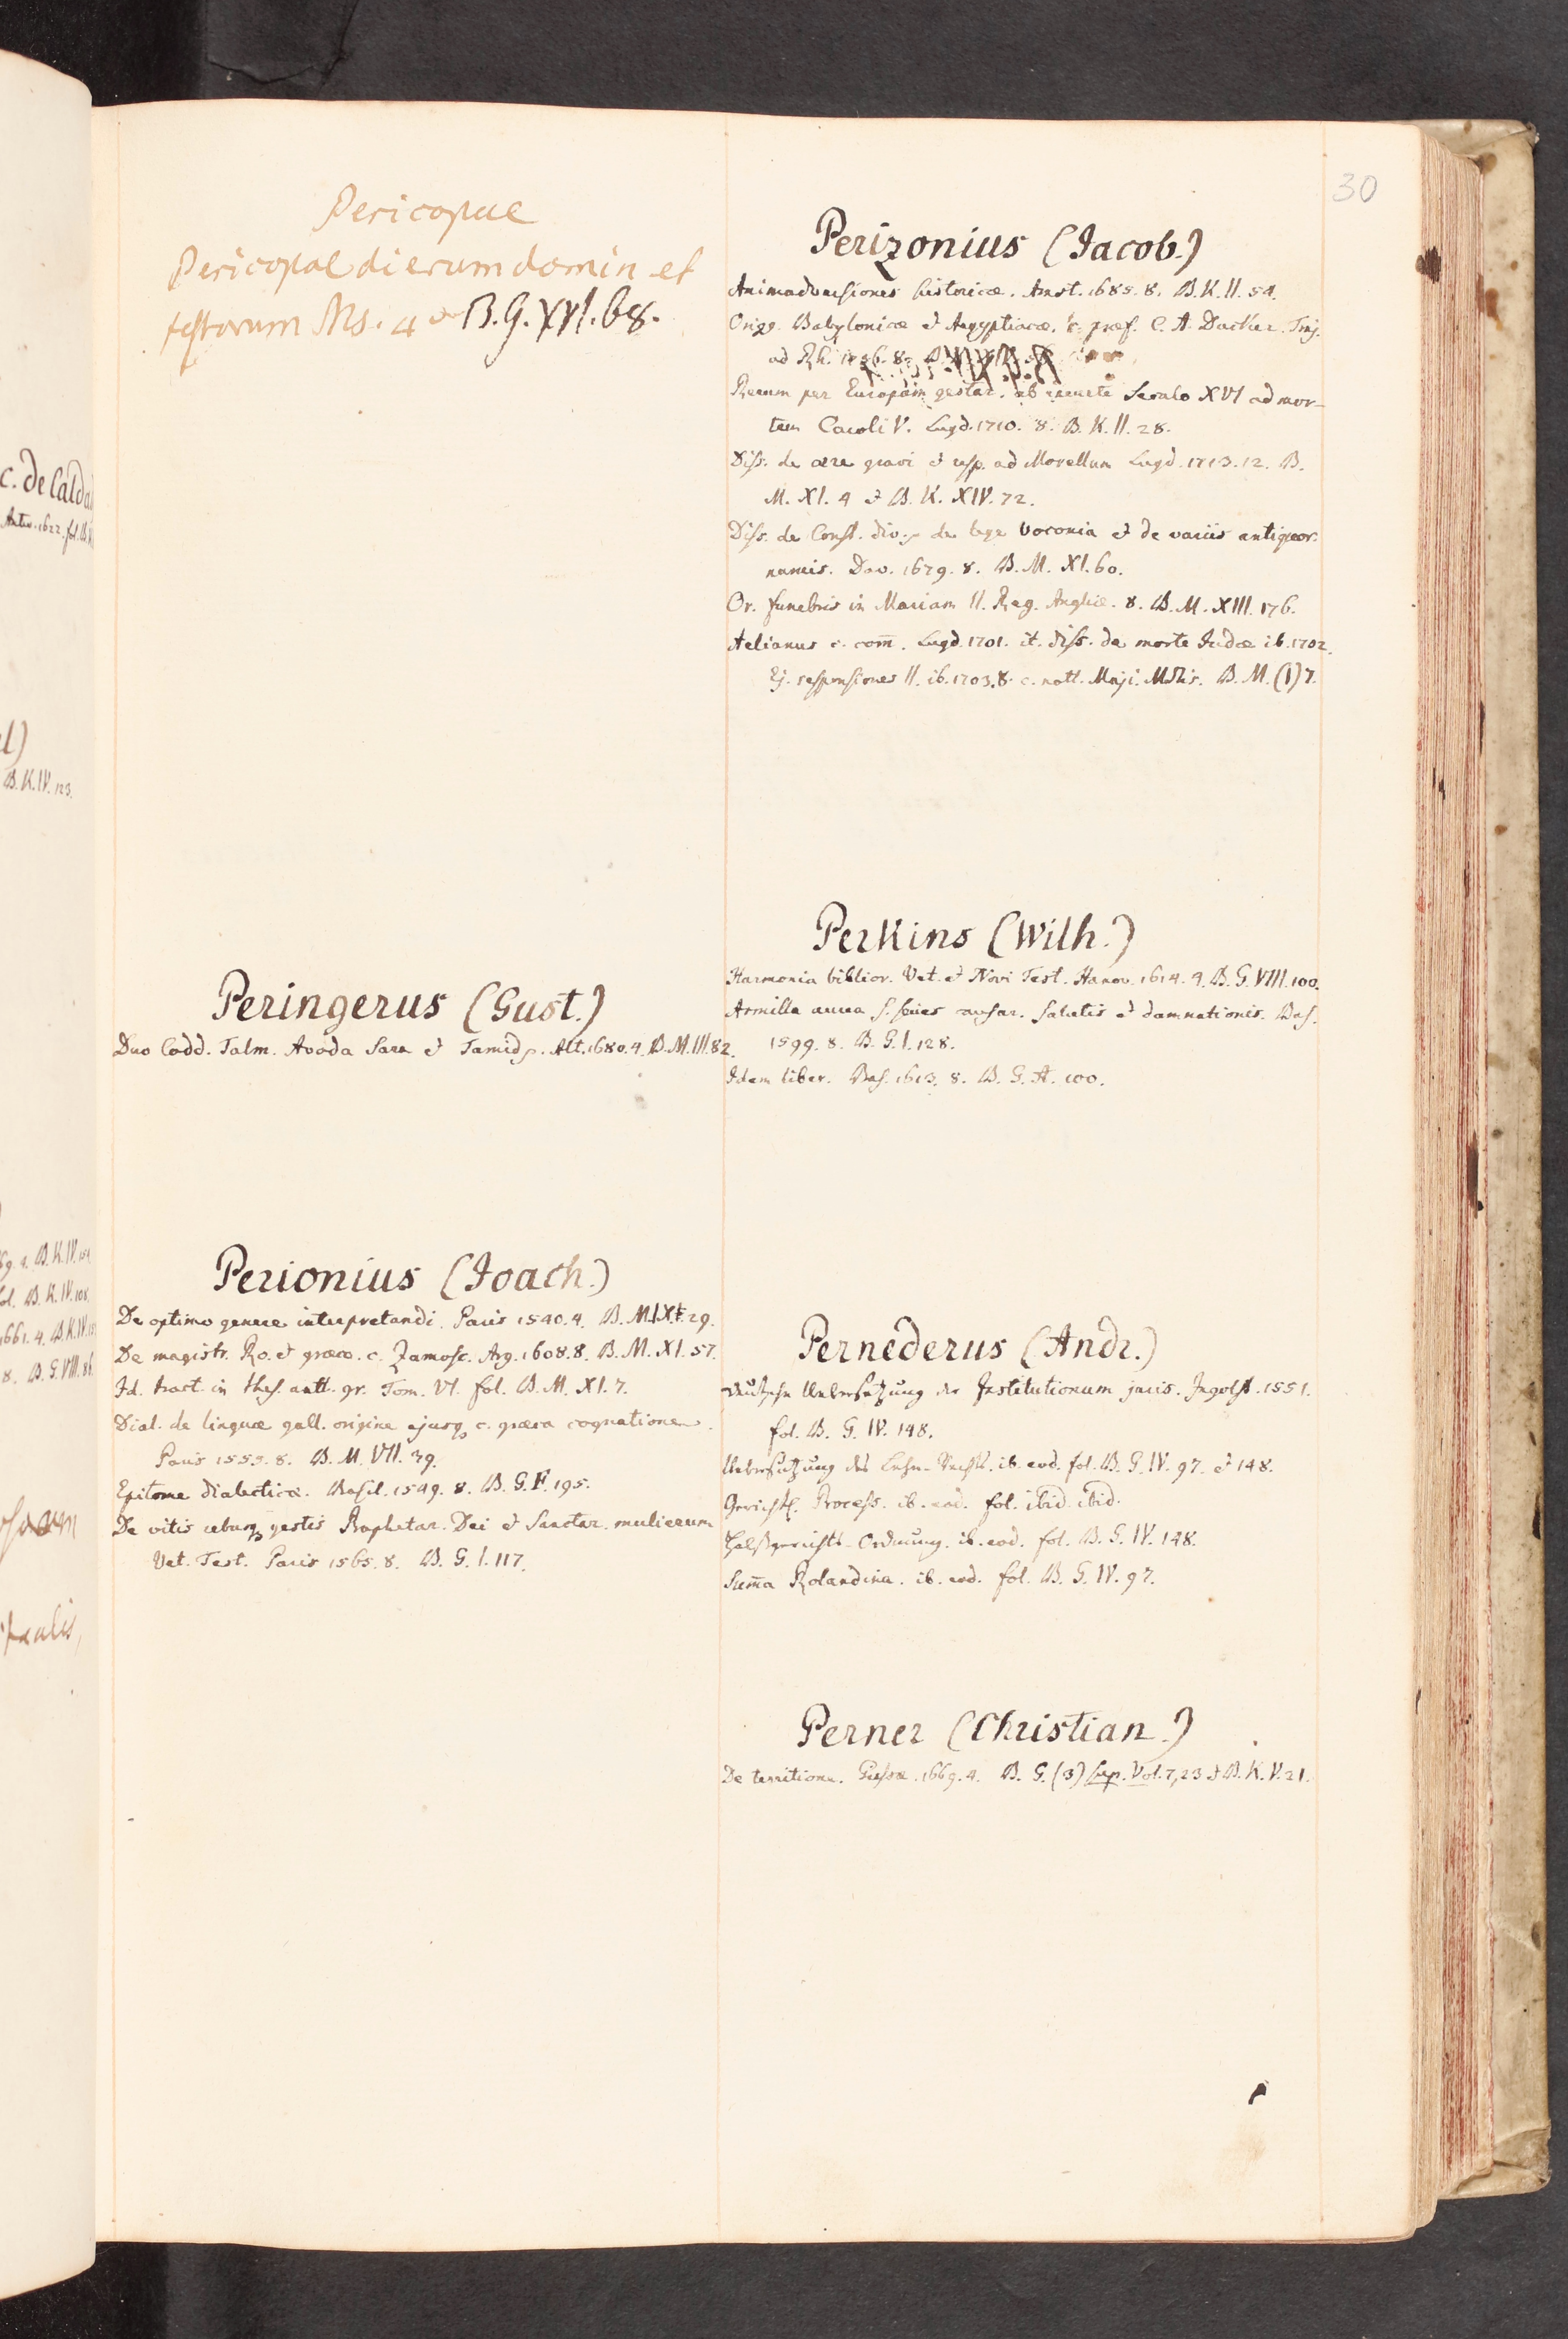 30
Pericopae
Pericopae dierum domin. et
festorum Ms. 4to B. G. XVI. 68.
Peringerus (Gust.)
Duo Codd. Talm. Avoda Sara et Tamid. Alt. 1680. 4. B. M. III. 82.
Perionius (Joach.)
De optimo genere interpretandi. Paris 1540. 4. B. M. 29.
De magistr. Ro. et græco. c. Zamosc. Arg. 1608. 8. B. M. XI. 57.
Id. tract. in thes. antt. gr. Tom. VI. fol. B. M. XI. 7.
Dial. de linguæ gall. origine ejusq3 c. græca cognatione.
Paris 1555. 8. B. M. VII. 39.
Epitome dialecticæ. Basil. 1549. 8. B. G. F. 195.
De vitis rebusq3 gestis Prophetar. Dei et Sanctar. mulierum
Vet. Test. Paris 1565. 8. B. G. I. 117.
Perizonius (Jacob.)
Animadversiones historicæ. Amst. 1685. 8. B. K. II. 54.
Origg. Babylonicæ et Aegyptiacæ. c. præf. C. A. Duker. Traj.
ad Rh. 1736. 8.
Rerum per Europam gestar. ab ineunte Seculo XVI ad mor-
tem Caroli V. Lugd. 1710. 8. B. K. II. 28.
Diss. de ære gravi et resp. ad Morellum Lugd. 1713. 12. B.
M. XI. 4 et B. K. XIV. 72.
Diss. de Const. div. de lege Voconia et de variis antiquor.
numis. Dav. 1679. 8. B. M. XI. 60.
Or. funebris in Mariam II. Reg. Angliæ. 8. B. M. XIII. 176.
Aelianus c. com̅. Lugd. 1701. it. diss. de morte Judæ ib. 1702.
Ej. responsiones II. ib. 1703. 8. c. nott. Maji. MStis. B. M. (I) 7.
Perkins (Wilh.)
Harmonia biblior. Vet. et Novi Test. Hanov. 1614. 4. B. G. VIII. 100.
Armilla aurea s. series causar. salutis et damnationis. Bas.
1599. 8. B. G. I. 128.
Idem liber. Bas. 1613. 8. B. G. A. 100.
Pernederus (Andr.)
deutsche Uebersetzung der Institutionum juris. Ingolst. 1551.
fol. B. G. IV. 148.
Uebersetzung des Lehn-Rechts. ib. eod. fol. B. G. IV. 97. et 148.
Gerichtl. Process. ib. eod. fol. ibid. ibid.
Halßgerichts-Ordnung. ib. eod. fol. B. G. IV. 148.
Sum̅a Rolandina. ib. eod. fol. B. G. IV. 97.
Perner (Christian.)
De territione. Giessæ. 1669. 4. B. G. (3) Vol. 7, 23 et B. K. V. 21.